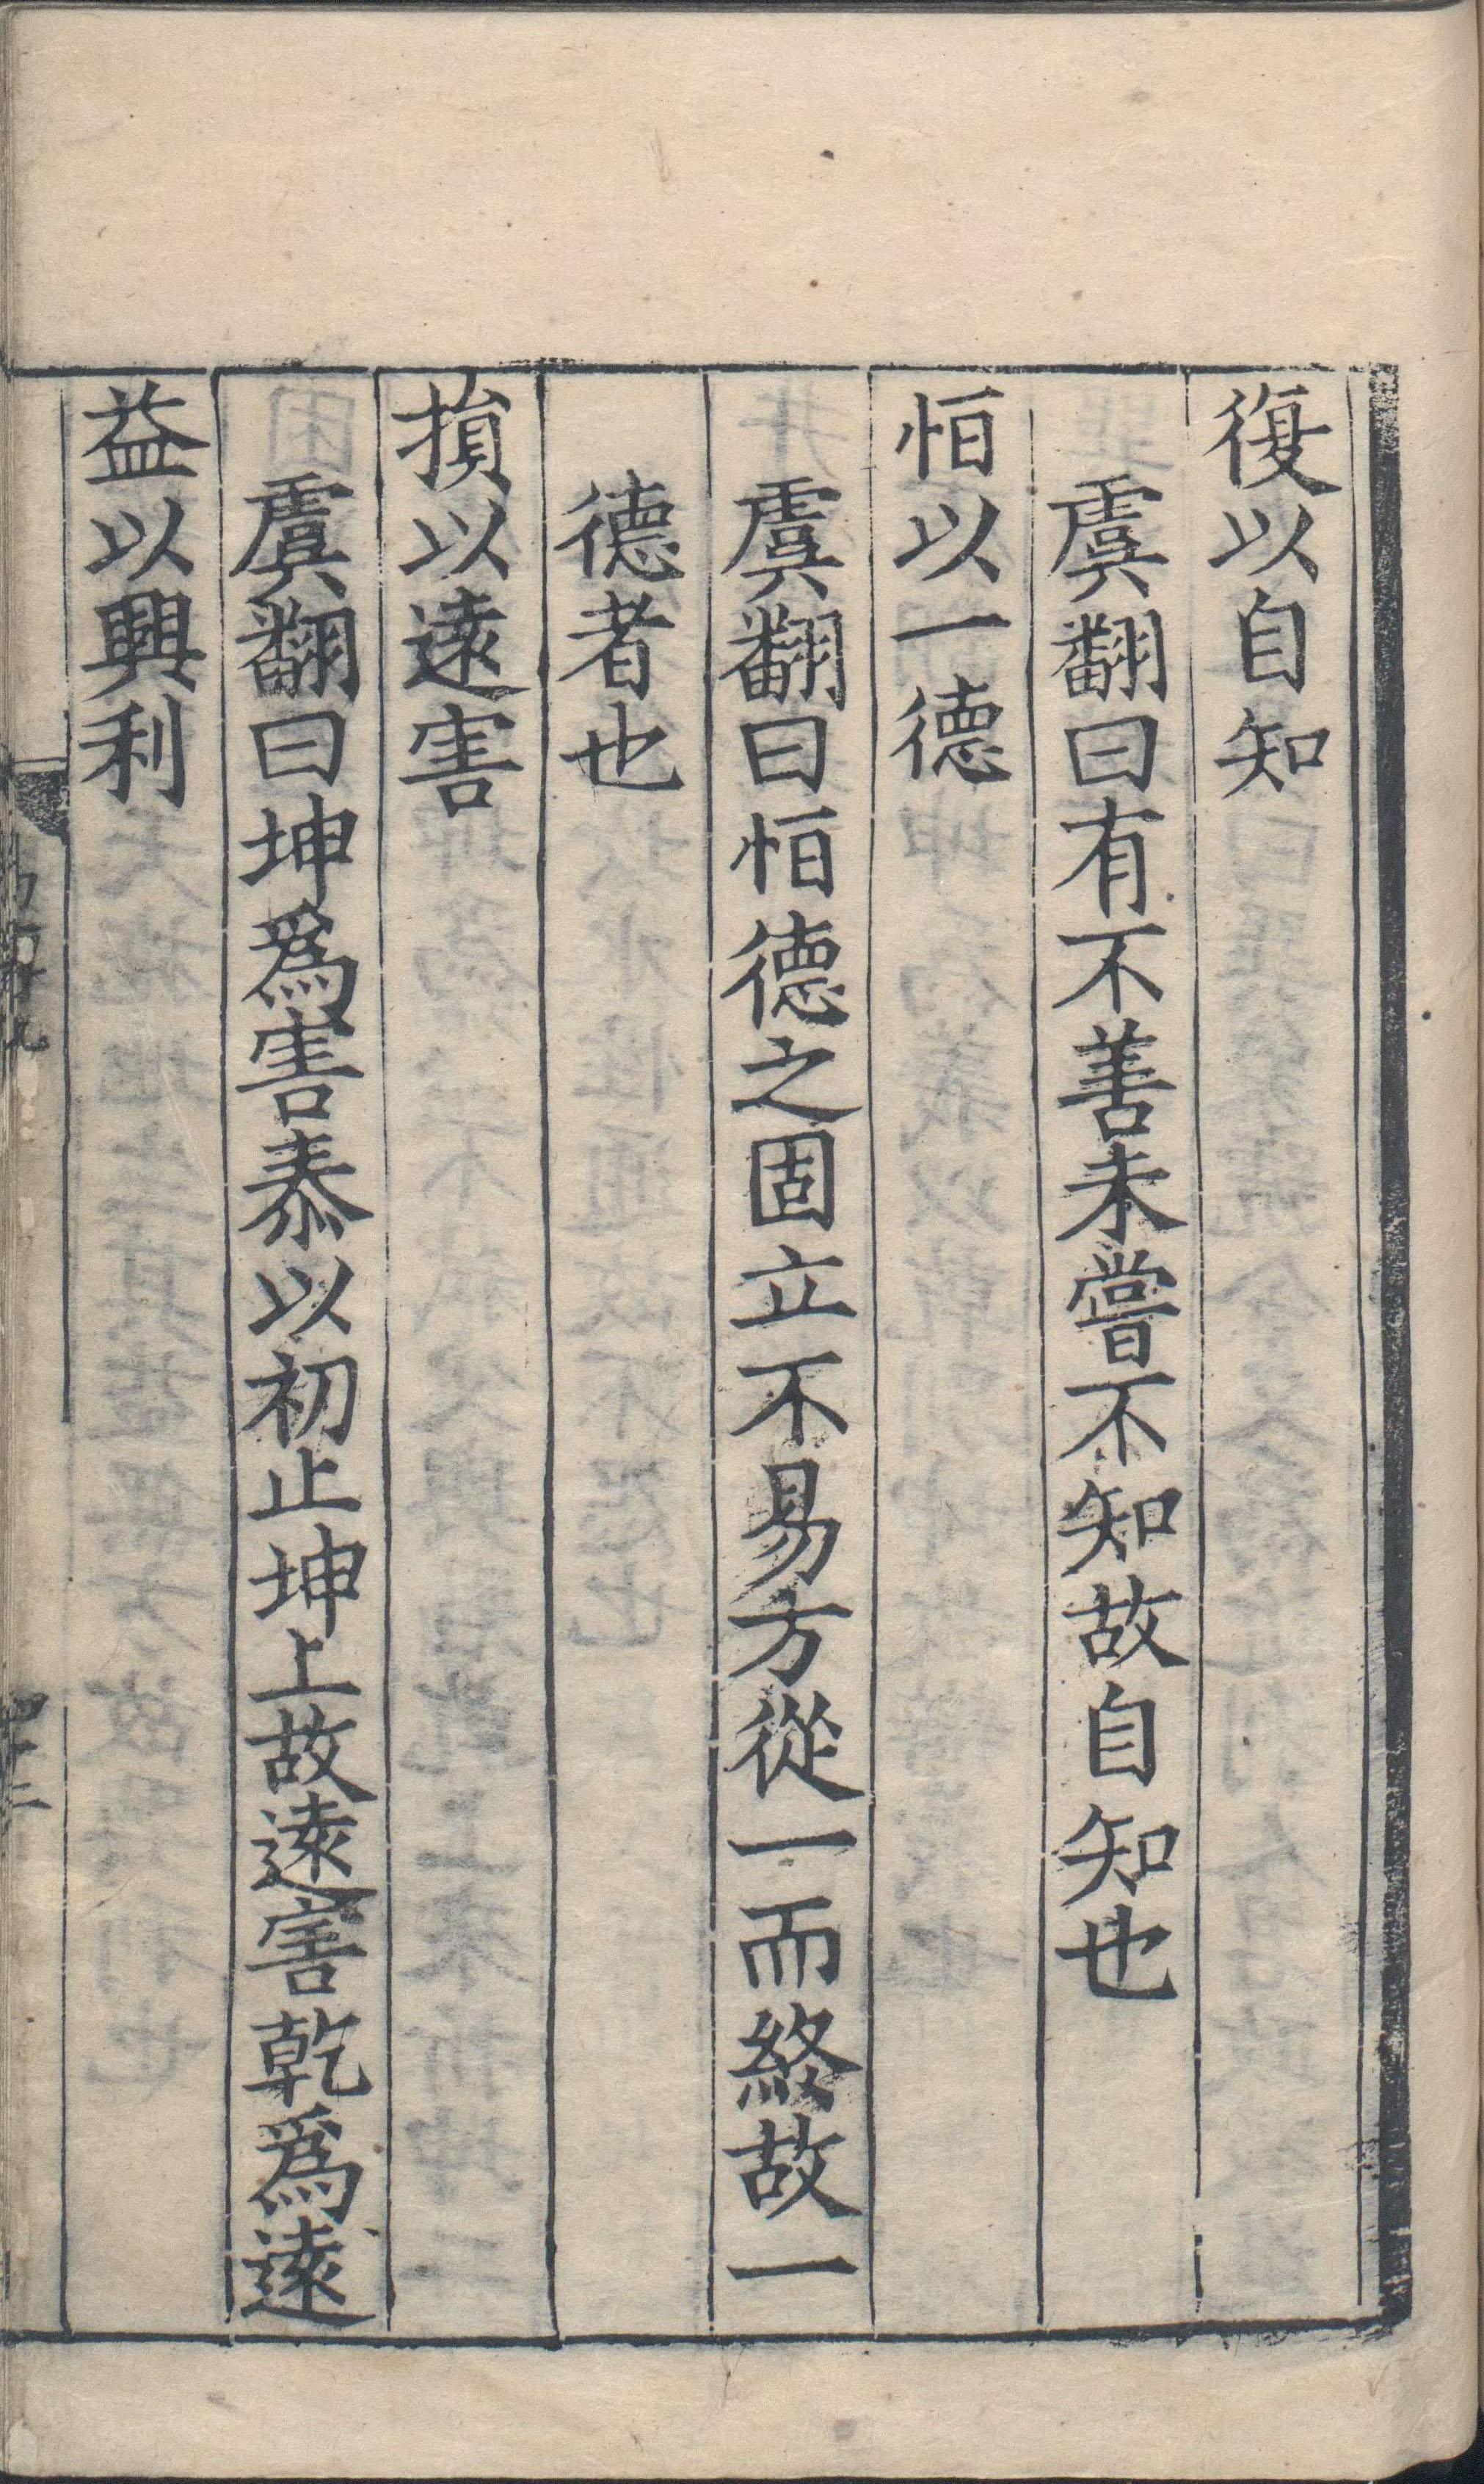 復以自知
虞翻曰有不善未嘗不知故自知也
恒以一德
虞翻曰恒德之固立不易方從一而終故一
德者也
損以遠害
虞翻曰坤爲害泰以初止坤上故遠害乾爲遠
益以興利